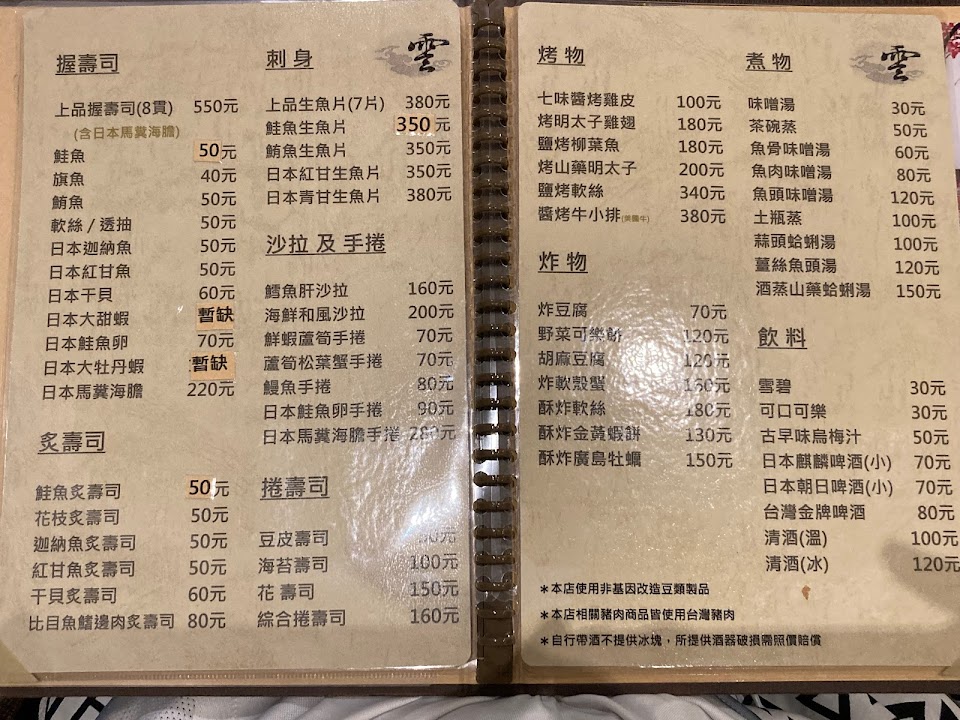 雲
握壽司
上品握壽司(8貫) 550元
(含日本馬糞海膽)
鮭魚 50元
旗魚 40元
鮪魚 50元
軟絲/透抽 50元
日本迦納魚 50元
日本紅甘魚 50元
日本干貝 60元
日本大甜蝦 暫缺
日本鮭魚卵 70元
日本大牡丹蝦 暫缺
日本馬糞海膽 220元
炙壽司
鮭魚炙壽司 50元
花枝炙壽司 50元
迦納魚炙壽司 50元
紅甘魚炙壽司 50元
干貝炙壽司 60元
比目魚鰭邊肉炙壽司 80元
刺身
上品生魚片(7片) 380元
鮭魚生魚片 350元
鮪魚生魚片 350元
日本紅甘生魚片 350元
日本青甘生魚片 380元
沙拉 及 手捲
鱈魚肝沙拉 160元
海鮮和風沙拉 200元
鮮蝦蘆筍手捲 70元
蘆筍松葉蟹手捲 70元
鰻魚手捲 80元
日本鮭魚卵手捲 90元
日本馬糞海膽手捲 280元
捲壽司
豆皮壽司 元
海苔壽司 100元
花 壽司 150元
綜合捲壽司 160元
雲
烤物
七味醬烤雞皮 100元
烤明太子雞翅 180元
鹽烤柳葉魚 180元
烤山藥明太子 200元
鹽烤軟絲 340元
醬烤牛小排(美國牛) 380元
炸物
炸豆腐 70元
野菜可樂餅 120元
胡麻豆腐 120元
炸軟殼蟹 160元
酥炸軟絲 180元
酥炸金黃蝦餅 130元
酥炸廣島牡蠣 150元
煮物
味噌湯 30元
茶碗蒸 50元
魚骨味噌湯 60元
魚肉味噌湯 80元
魚頭味噌湯 120元
土瓶蒸 100元
蒜頭蛤蜊湯 100元
薑絲魚頭湯 120元
酒蒸山藥蛤蜊湯 150元
飲料
雪碧 30元
可口可樂 30元
古早味烏梅汁 50元
日本麒麟啤酒(小) 70元
日本朝日啤酒(小) 70元
台灣金牌啤酒 80元
清酒(溫) 100元
清酒(冰) 120元
＊本店使用非基因改造豆類製品
＊本店相關豬肉商品皆使用台灣豬肉
＊自行帶酒不提供冰塊，所提供酒器破損需照價賠償